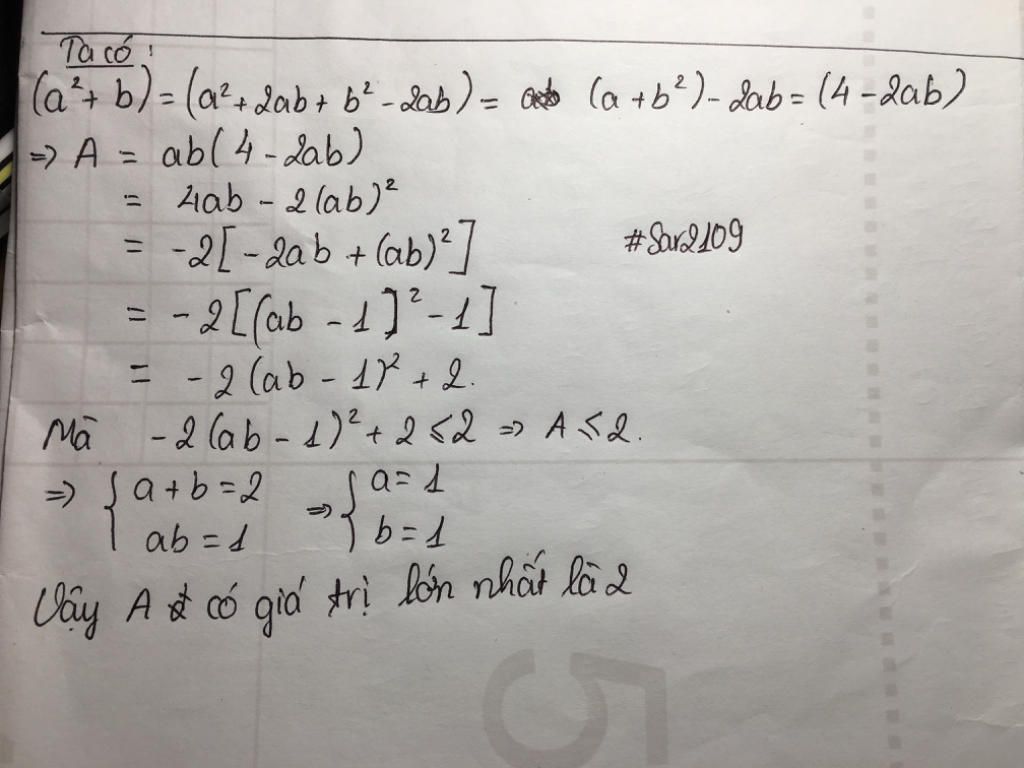 Ta có :
(a² + b) = (a² + 2ab + b² - 2ab) = (a + b²) - 2ab = (4 - 2ab)
=> A = ab(4 - 2ab)
= 4ab - 2(ab)²
= -2[-2ab + (ab)²]
#Sar2109
= -2[(ab - 1]² - 1]
= -2(ab - 1)² + 2.
Mà -2(ab - 1)² + 2 ≤ 2 => A ≤ 2.
=> { a + b = 2 => { a = 1
ab = 1 b = 1
Vậy A có giá trị lớn nhất là 2
5